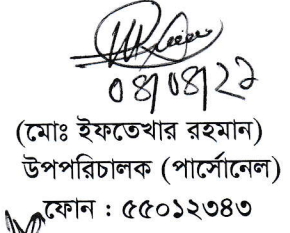 ০৪/০৪/২১
(মোঃ ইফতেখার রহমান)
উপপরিচালক (পার্সোনেল)
ফোন : ৫৫০১২৩৪৩